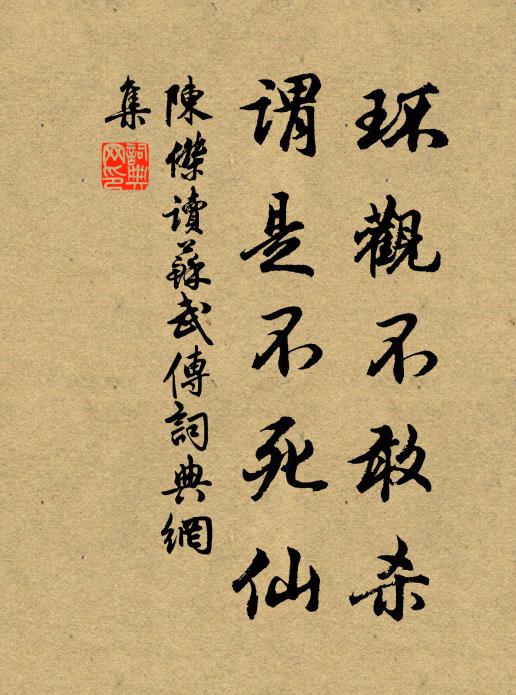 环觀不敢杀
謂是不死仙
陳傑讀蘇武傳詞典網
集
詞典網印